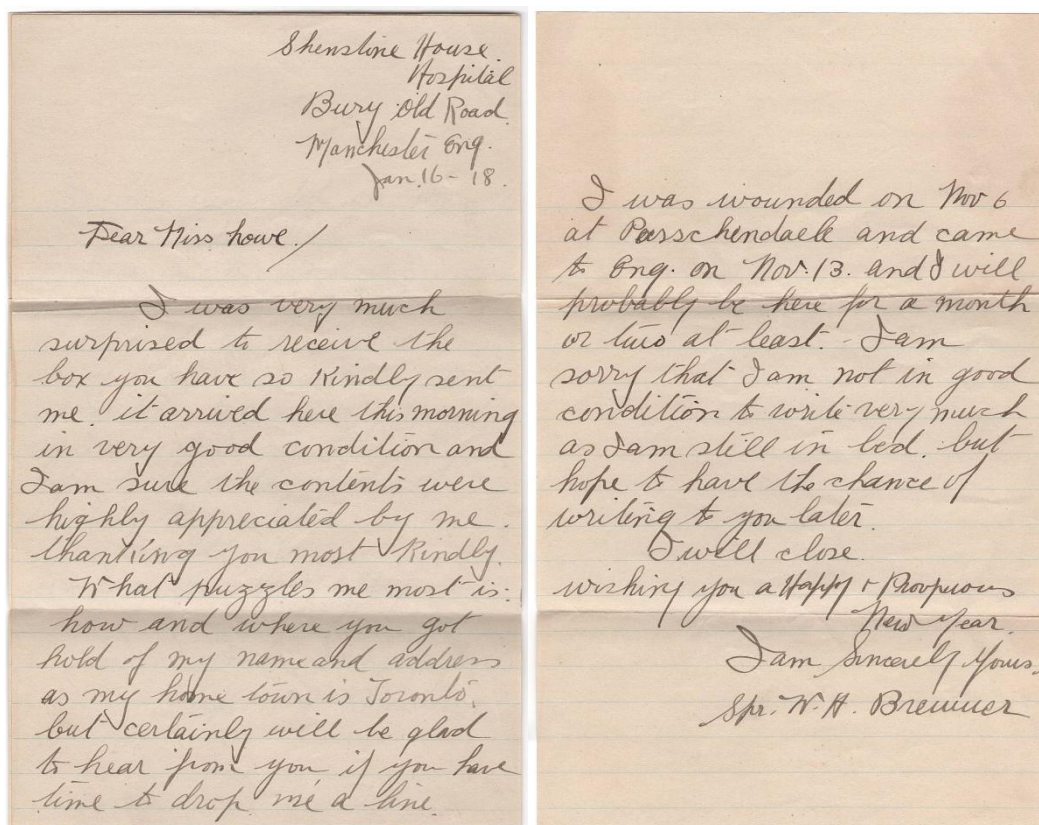 Shenstone House.
Hospital
Bury Old Road.
Manchester Eng.
Jan. 16 - 18.
Dear Miss Lowe./
I was very much
surprised to receive the
box you have so Kindly sent
me. it arrived here this morning
in very good condition and
I am sure the contents were
highly appreciated by me.
thanking you most Kindly.
What puzzles me most is:
how and where you got
hold of my name and address
as my home town is Toronto.
but certainly will be glad
to hear from you if you have
time to drop me a line.
I was wounded on Nov 6
at Passchendaele and came
to Eng. on Nov. 13. and I will
probably be here for a month
or two at least. - I am
sorry that I am not in good
condition to write very much
as I am still in bed. but
hope to have the chance of
writing to you later.
I will close.
wishing you a Happy + Prospious
New Year.
I am Sincerely Yours.
Spr. W. H.